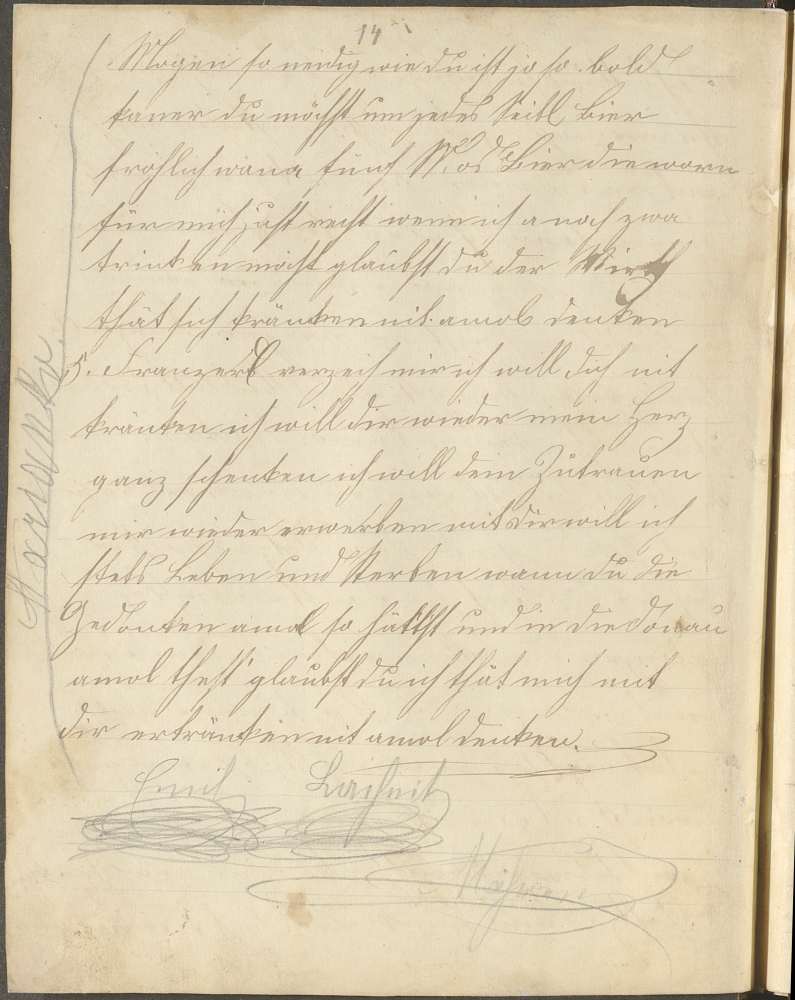 14
Mogen so neidig wie du ist jo so bold
kaner du möchst um jedes Seitl Bier
fröhlich wana fünf Mos Bier die worn
für mich just recht wenn ich a noch zwa
trinken möcht glaubst du der Wirth
thät sich kränken nit amol denken
5. Franzerl verzeih mir ich will dich nit
kränken ich will dir wieder mein Herz
ganz schenken ich will dein Zutrauen
mir wieder erwerben mit dir will ich
stets Leben und sterben wann du die
Gedonken amol so hättst und in die Donau
amol thest glaubst du ich thät mich mit
dir ertränken nit amol denken.
Emil